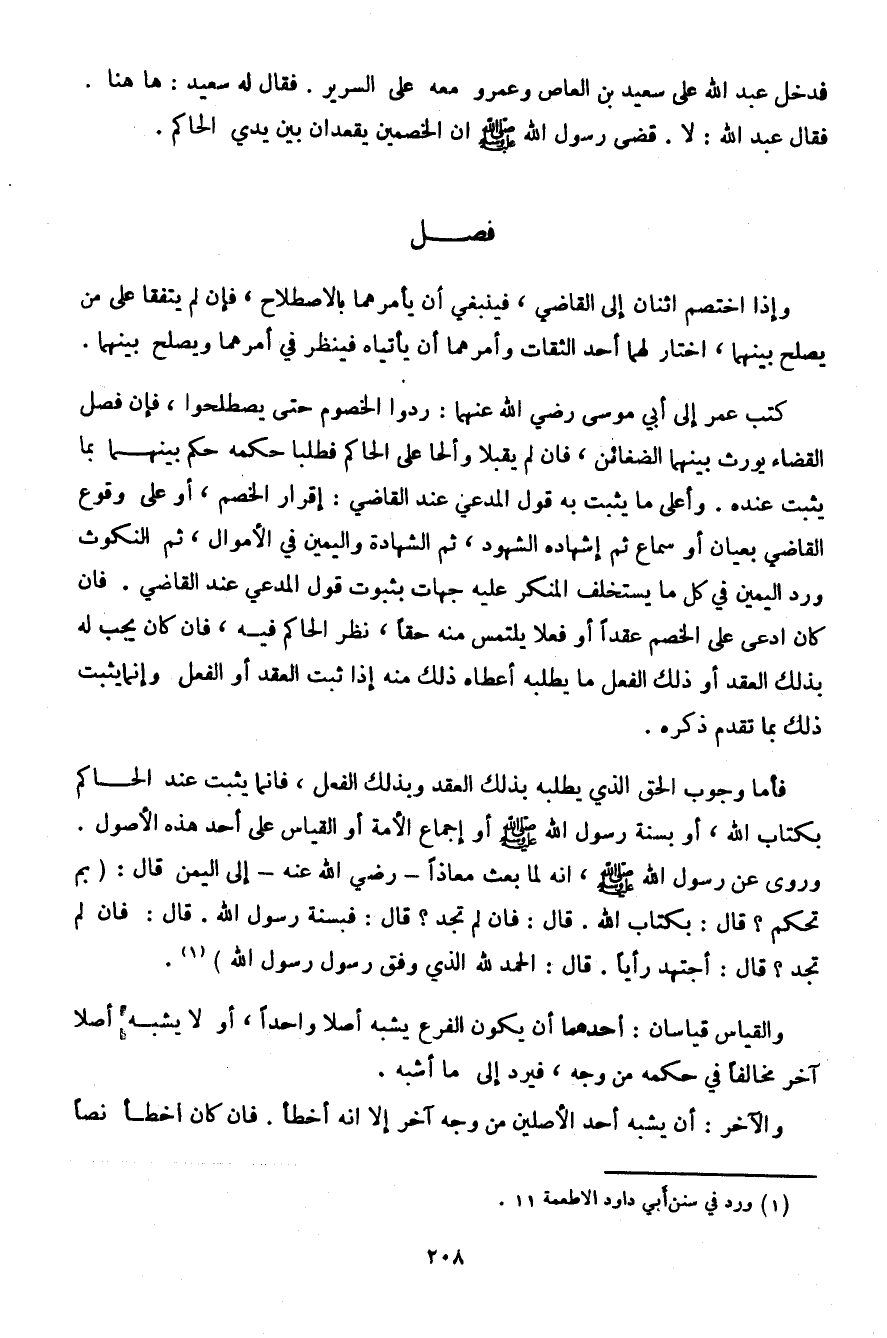 فدخل عبد الله على سعيد بن العاص وعمرو معه على السرير . فقال له سعيد : ها هنا .
فقال عبد الله : لا . قضى رسول الله ﷺ ان الخصمين يقعدان بين يدي الحاكم .
فصـــــل
وإذا اختصم اثنان إلى القاضي ، فينبغي أن يأمرهما بالاصطلاح ، فإن لم يتفقا على من
يصلح بينهما ، اختار لهما أحد الثقات وأمرهما أن يأتياه فينظر في أمرهما ويصلح بينهما .
كتب عمر إلى أبي موسى رضي الله عنهما : ردوا الخصوم حتى يصطلحوا ، فإن فصل
القضاء يورث بينهما الضغائن ، فان لم يقبلا وألحا على الحاكم فطلبا حكمه حكم بينهـــما بما
يثبت عنده . وأعلى ما يثبت به قول المدعي عند القاضي : إقرار الخصم ، أو على وقوع
القاضي بعيان أو سماع ثم إشهاده الشهود ، ثم الشهادة واليمين في الأموال ، ثم النكوث
ورد اليمين في كل ما يستخلف المنكر عليه جهات بثبوت قول المدعي عند القاضي . فان
كان ادعى على الخصم عقداً أو فعلا يلتمس منه حقاً ، نظر الحاكم فيـــه ، فان كان يجب له
بذلك العقد أو ذلك الفعل ما يطلبه أعطاه ذلك منه إذا ثبت العقد أو الفعل وإنما يثبت
ذلك بما تقدم ذكره .
فأما وجوب الحق الذي يطلبه بذلك العقد وبذلك الفعل ، فانما يثبت عند الحـــاكم
بكتاب الله ، أو بسنة رسول الله ﷺ أو إجماع الأمة أو القياس على أحد هذه الأصول .
وروى عن رسول الله ﷺ ، انه لما بعث معاذاً – رضي الله عنه – إلى اليمن قال : ( بم
تحكم ؟ قال : بكتاب الله . قال : فان لم تجد ؟ قال : فبسنة رسول الله . قال : فان لم
تجد ؟ قال : أجتهد رأياً . قال : الحمد لله الذي وفق رسول رسول الله ) (١) .
والقياس قياسان : أحدهما أن يكون الفرع يشبه أصلا واحداً ، أو لا يشبـــه أصلا
آخر مخالفاً في حكمه من وجه ، فيرد إلى ما أشبه .
والآخر : أن يشبه أحد الأصلين من وجه آخر إلا انه أخطأ . فان كان اخطـأ نصاً
(١) ورد في سنن أبي داود الاطعمة ١١ .
٢٠٨